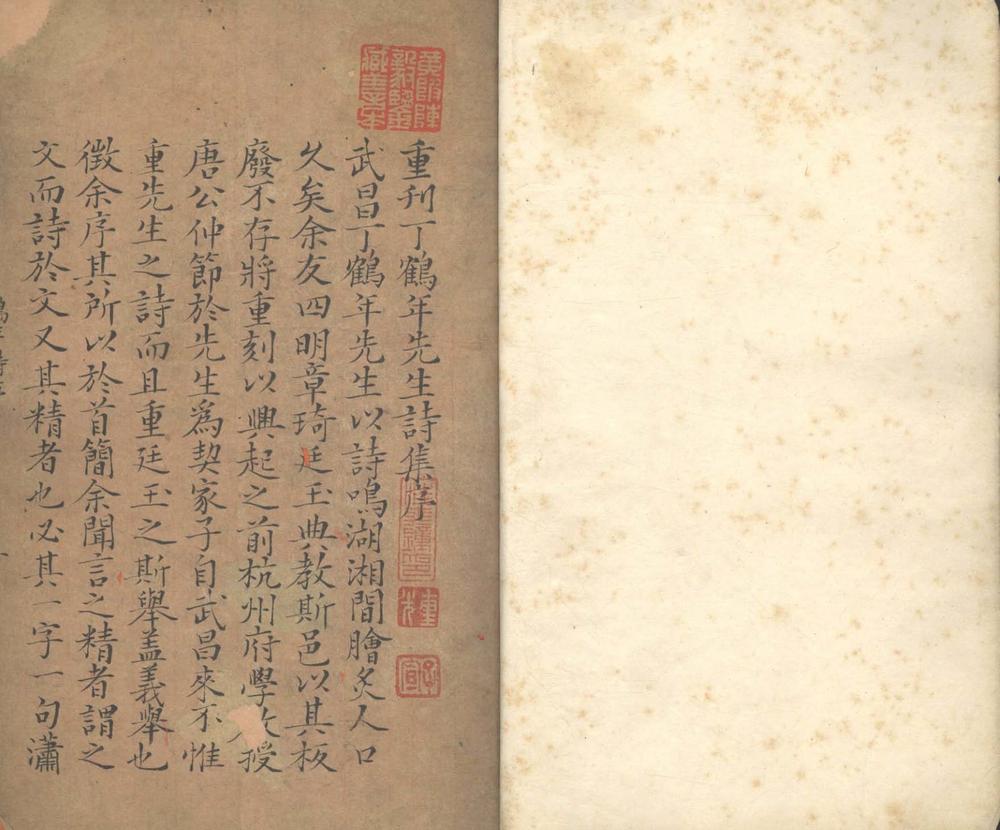 重刊丁鶴年先生詩集序
武昌丁鶴年先生以詩鳴湖湘間膾炙人口
久矣余友四明章琦廷玉典教斯邑以其板
廢不存將重刻以興起之前杭州府學教授
唐公仲節於先生為契家子自武昌來不惟
重先生之詩而且重廷玉之斯舉蓋義舉也
徵余序其所以於首簡余聞言之精者謂之
文而詩於文又其精者也必其一字一句瀟